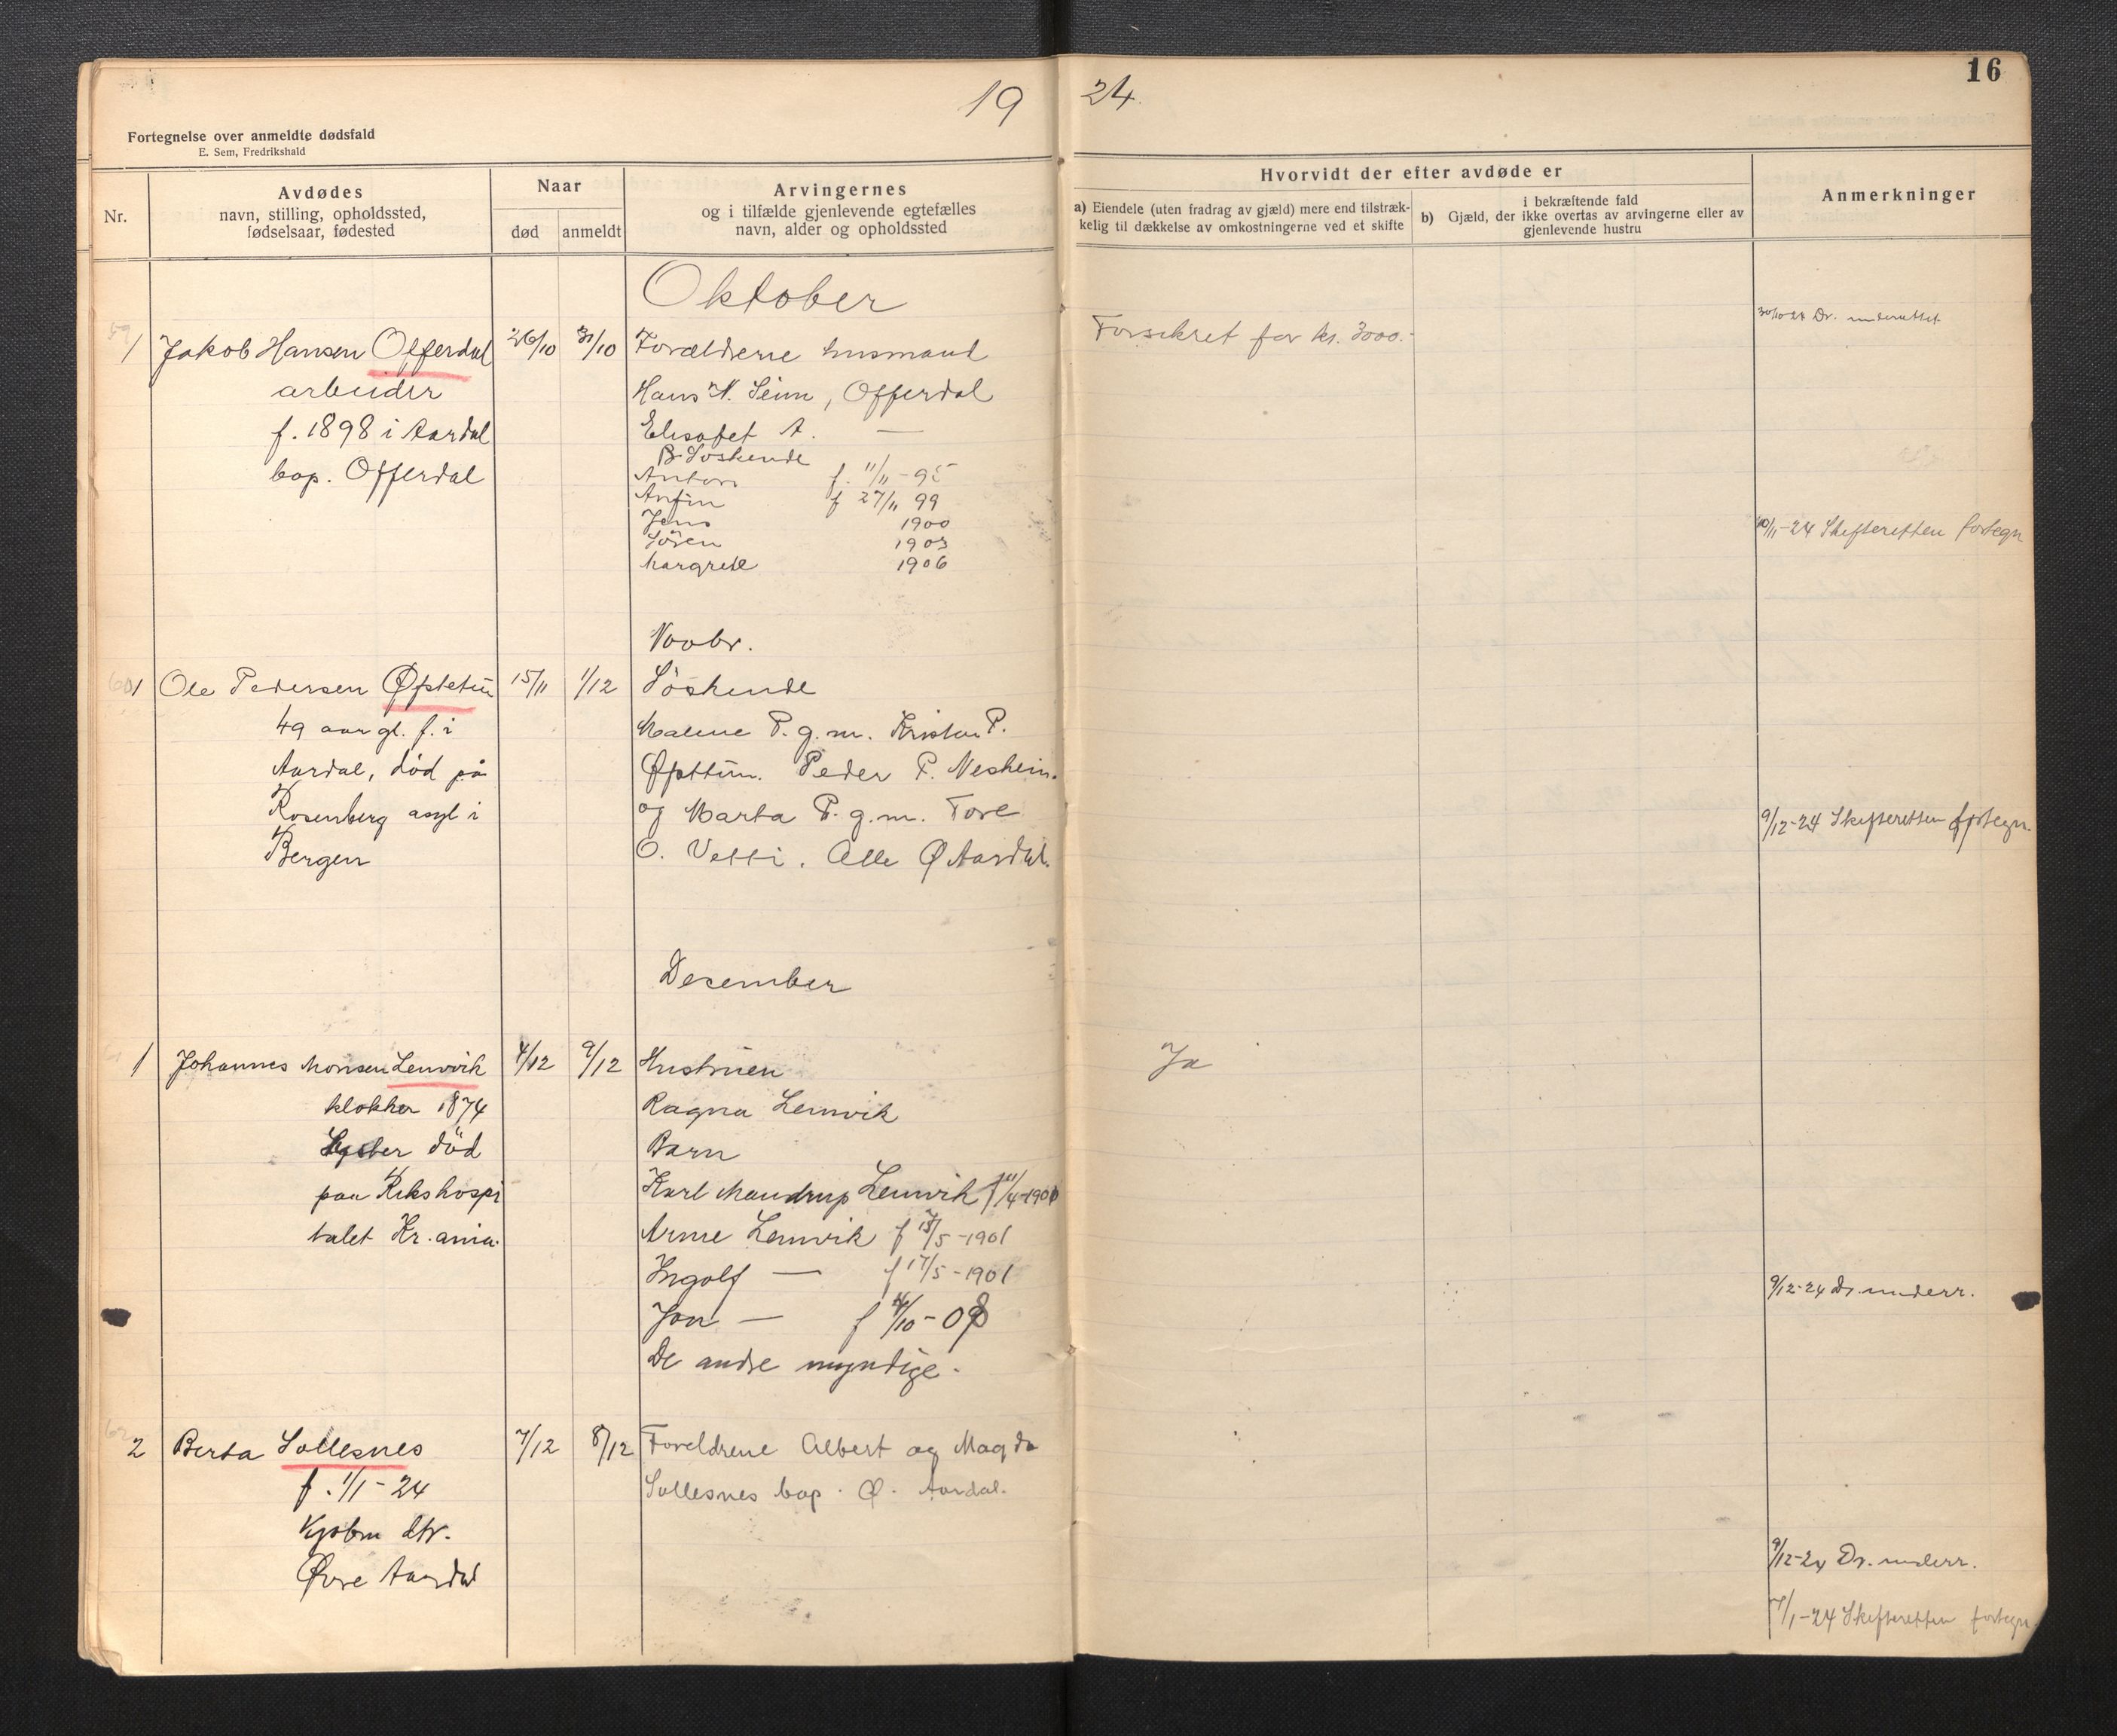 19 24.
16
Fortegnelse over anmeldte dødsfald
E. Sem, Fredrikshald
Nr.
Avdødes
navn, stilling, opholdssted,
fødselsaar, fødested
Naar
død anmeldt
Arvingernes
og i tilfælde gjenlevende egtefælles
navn, alder og opholdssted
Hvorvidt der efter avdøde er
a) Eiendele (uten fradrag av gjæld) mere end tilstræk-
kelig til dækkelse av omkostningerne ved et skifte
i bekræftende fald
b) Gjæld, der ikke overtas av arvingerne eller av
gjenlevende hustru
Anmerkninger
Oktober
59
1 Jakob Hansen Offerdal 26/10 31/10 Forældrene husmand
arbeider
f. 1898 i Aardal
bop. Offerdal
Hans N. Seim, Offerdal
Elisabet A. —
B. Söskende
Anton f. 11/11 - 95
Anfin f 27/11 99
Jens 1900
Sören 1903
Margrete 1906
Forsikret for kr. 3000.-
30/10 24 Dr. underrettet
10/11-24 Skifteretten fortegn
Novbr.
60
1 Ole Pedersen Øfstetun 15/11 1/12 Söskende
49 aar gl. f. i
Aardal, död på
Rosenberg asyl i
Bergen
Malene P. g.m. Kristen P.
Øfsttun. Peder P. Neshein.
og Marta P. g.m. Tore
O. Vetti. Alle Ø Aardal.
9/12-24 Skifteretten fortegn.
Desember
1 Johannes Monsen Lemvik 4/12 9/12 Hustruen
klokker 1874
Lyster död
paa Rikshospi
talet Kr.ania.
Ragna Lemvik
Barn
Karl Mandrup Lemvik f /4-1900
Arne Lemvik f 15/5-1901
Ingolf — f 17/5-1901
Jon — f /10-08
De andre myndige.
Ja
9/12-24 Dr. underr.
62
2 Berta Sollesnes 7/12 8/12 Foreldrene Albert og Magda
f. 1/1-24
dtr.
Øvre Aardal
Sollesnes bop. Ø. Aardal.
9/12-24 Dr. underr.
7/1-24 Skifteretten fortegn